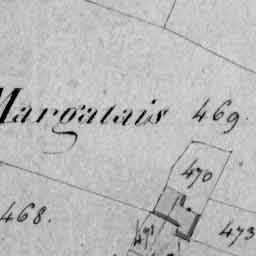 Margatais 469.
470
468.
473
471